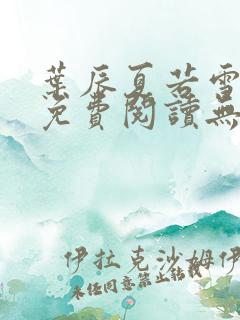 葉辰夏若雪
免費閱讀無
伊拉克沙姆伊
未經同意禁止轉載